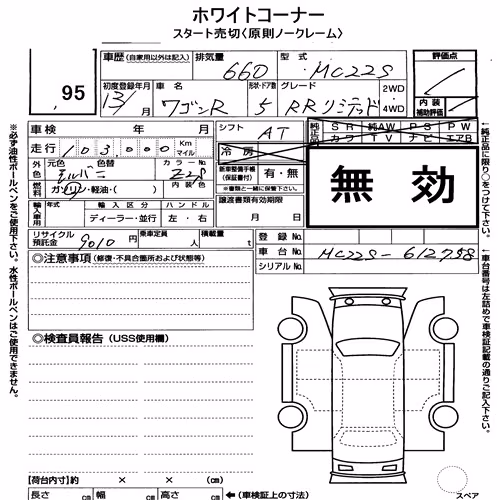 ホワイトコーナー
スタート売切〈原則ノークレーム〉
95
車歴 (自家用以外は記入)
排気量 660
型式 MC22S
評価点
初度登録年月 13/月
車名 ワゴンR
形状・ドア数 5
グレード RRリミテッド
2WD
4WD
内装
補助評価
車検 年 月
シフト AT
純正品 SR 純AW PS PW
カワ TV ナビ エアB
走行 103,000 Km
マイル
冷房
無効
外色 元色 色替
カラーNo. Z2S
内装色
燃料 ガソリン・軽油・( )
新車整備手帳
(保証書付) 有・無
※書類と一緒に保管下さい。
輸入車用 輸入区分 ハンドル
ディーラー・並行 左・右
譲渡書類有効期限
月 日
リサイクル
預託金 9010 円
乗車定員 人
積載量 t
登録No.
車台No. MC22S-612798
シリアルNo.
◎注意事項 (修復・不具合箇所および状態等)
◎検査員報告 (USS使用欄)
【荷台内寸】約 × × (cm)
長さ (cm) 幅 (cm) 高さ (cm)
←(車検証上の寸法)
スペア
※必ず油性ボールペンをご使用下さい。水性ボールペンはご使用できません。
↑純正品に限り○をつけて下さい。
↑車台番号は左詰めで車検証記載の通りご記入下さい。